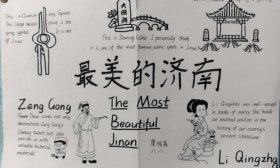 Quancheng Square
This large
structure is the
symbol
of Jinan
大明湖
This is Daming Lake. I personally think
it is one of the most famous scenic spots in Jinan
最美的济南
Zeng Gong
These words not only
demonstrate Zeng Gong's
literary talent, but also
provide us with
valuable historical
materials.
The Most
Beautiful
Jinan
Li Qingzhao was well-versed
in books of poetry. She holds
an exalted position in
the history of our country's
ancient literature
Li Qingzh